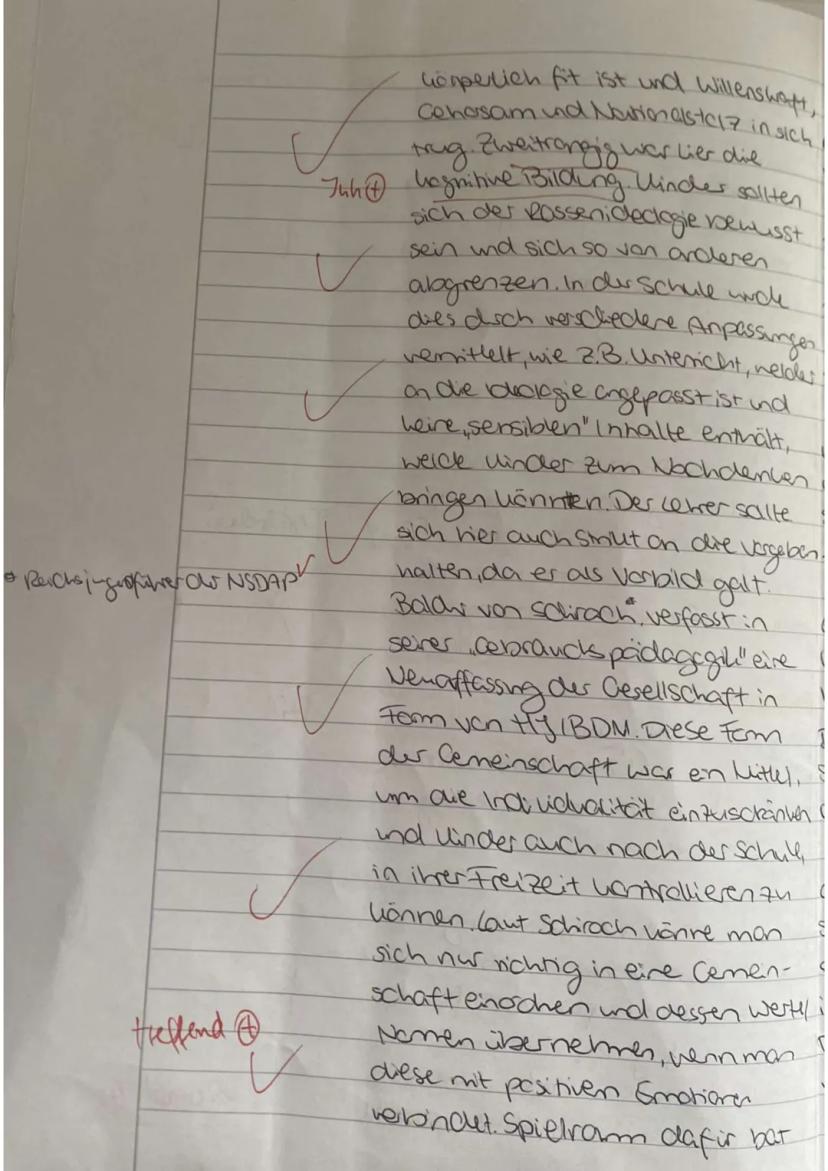 körperlich fit ist und Willenskraft,
Gehorsam und Nationalstolz in sich
trug. Zweitrangig war hier die
Inh +
kognitive Bildung. Kinder sollten
sich der Rassenideologie bewusst
sein und sich so von anderen
abgrenzen. In der Schule wurde
dies durch verschiedene Anpassungen
vermittelt, wie z.B. Unterricht, welcher
an die Ideologie angepasst ist und
keine „sensiblen" Inhalte enthält,
welche Kinder zum Nachdenken
bringen könnten. Der Lehrer sollte
sich hier auch strikt an die Vorgaben
* Reichsjugendführer der NSDAP
halten, da er als Vorbild galt.
Baldur von Schirach* verfasst in
seiner „Gebrauchspädagogik" eine
Neuauffassung der Gesellschaft in
Form von HJ/BDM. Diese Form
der Gemeinschaft war ein Mittel,
um die Individualität einzuschränken
und Kinder auch nach der Schule,
in ihrer Freizeit kontrollieren zu
können. Laut Schirach könne man
sich nur richtig in eine Gemein-
schaft einordnen und dessen Werte/
treffend +
Normen übernehmen, wenn man
diese mit positiven Emotionen
verbindet. Spielraum dafür bat